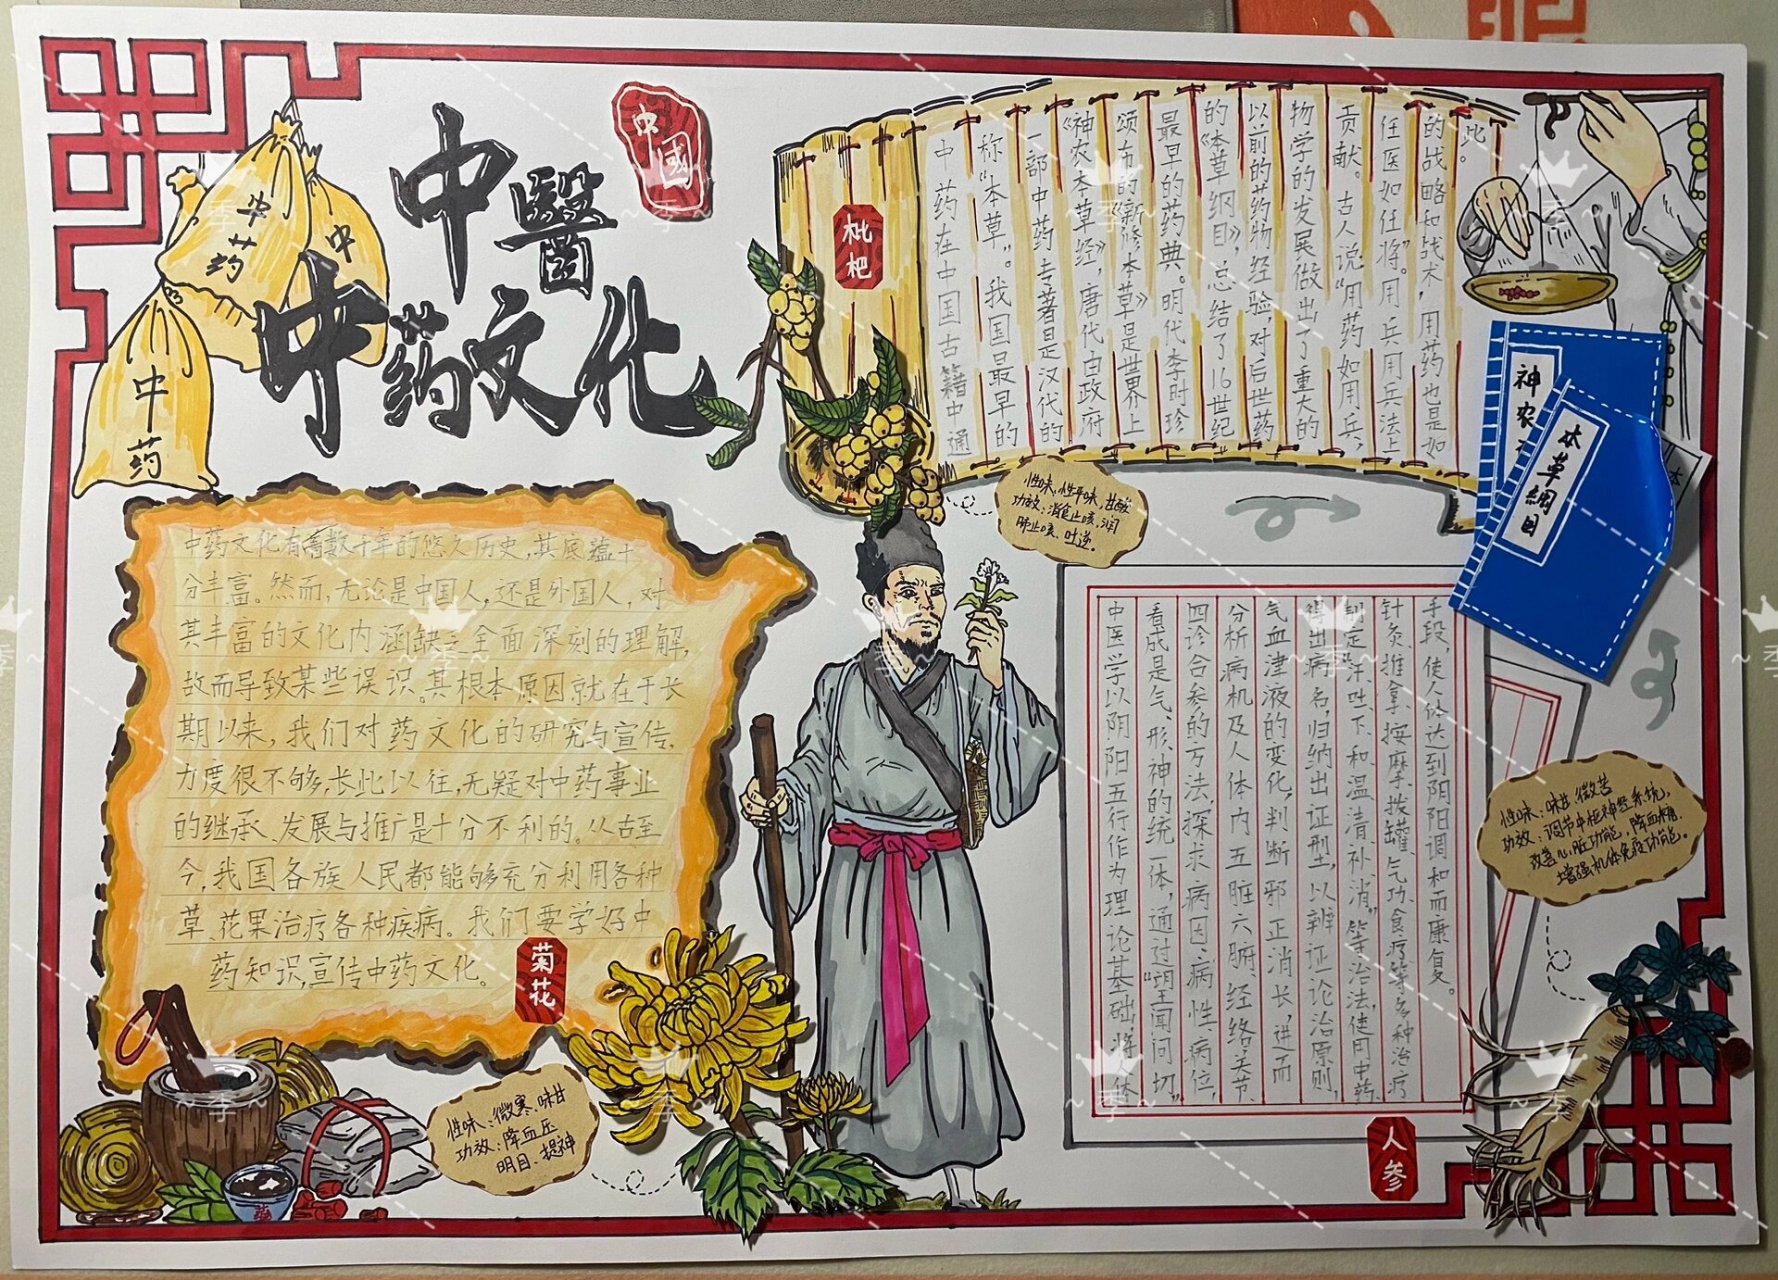 中國
中醫
中药文化
中药
中
中药
中药文化有着数千年的悠久历史,其底蕴十
分丰富。然而,无论是中国人,还是外国人,对
其丰富的文化内涵缺乏全面深刻的理解,
故而导致某些误识。其根本原因就在于长
期以来,我们对药文化的研究与宣传
力度很不够,长此以往,无疑对中药事业
的继承、发展与推广是十分不利的。从古至
今,我国各族人民都能够充分利用各种
草、花果治疗各种疾病。我们要学好中
药知识,宣传中药文化。
菊花
性味:微寒、味甘
功效:降血压
明目、提神
枇杷
中药在中国古籍中通
称“本草”。我国最早的
一部中药专著是汉代的
《神农本草经》,唐代由政府
颁布的《新修本草》是世界上
最早的药典。明代李时珍
的《本草纲目》,总结了16世纪
以前的药物经验,对后世药
物学的发展做出了重大的
贡献。古人说“用药如用兵,
任医如任将”。用兵用兵法上
的战略和战术,用药也是如
此。
性味:性平味,甘酸
功效:消食止咳,润
肺止咳、吐逆。
神农本
本草綱目
本
中医学以阴阳五行作为理论基础,将人体
看成是气、形、神的统一体,通过“望闻问切”
四诊合参的方法,探求病因、病性、病位,
分析病机及人体内五脏六腑、经络关节、
气血津液的变化,判断邪正消长,进而
得出病名,归纳出证型,以辨证论治原则,
制定“汗吐下和温清补消”等治法,使用中药、
针灸、推拿、按摩、拔罐、气功、食疗等多种治疗
手段,使人体达到阴阳调和而康复。
性味:味甘、微苦
功效:调节中枢神经系统,
改善心脏功能,降血糖,
增强机体免疫功能。
人参